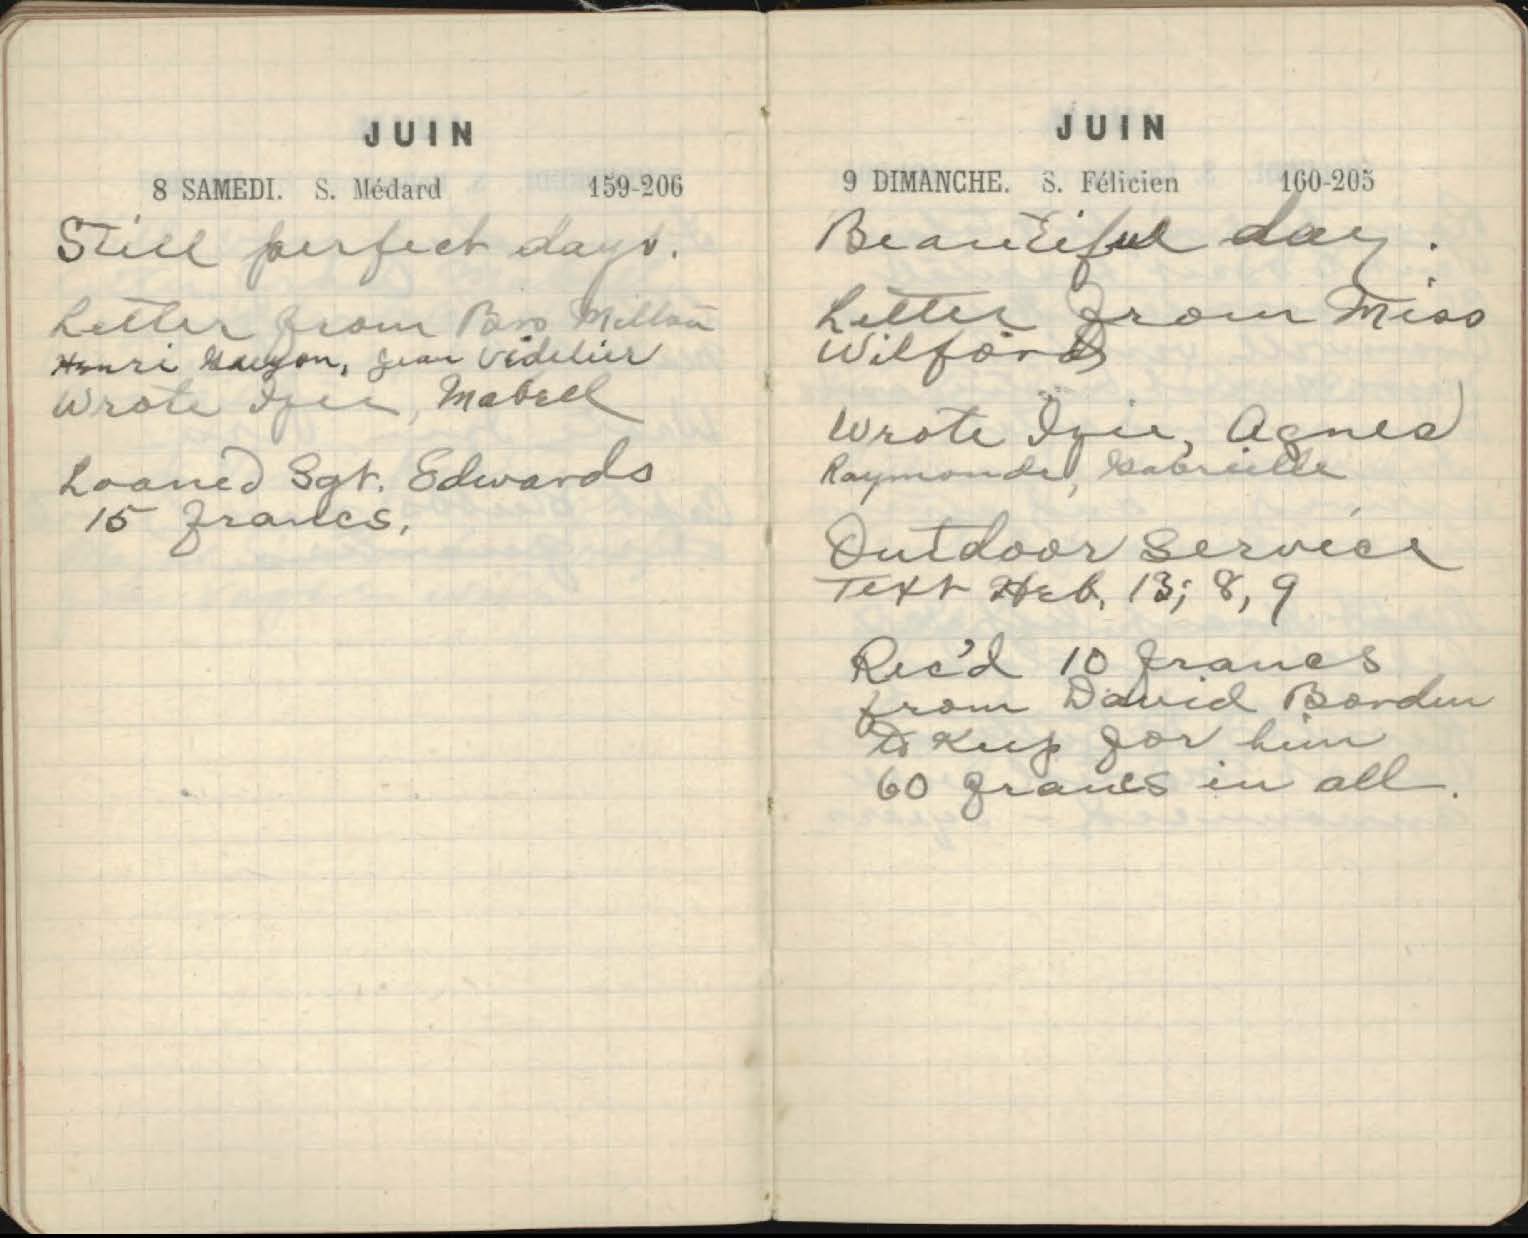 JUIN
8 SAMEDI. S. Médard 159-206
Still perfect days.
Letter from Bro Milton
Henri Gauyon, Jean Videlier
Wrote Izie, Mabell
Loaned Sgt. Edwards
15 francs.
JUIN
9 DIMANCHE. S. Félicien 160-205
Beautiful day.
Letter from Miss
Wilford
Wrote Izie, Agnes
Raymonde, Gabrielle
Outdoor service
Text Heb. 13; 8, 9
Rec'd 10 francs
from David Borden
to keep for him
60 francs in all.